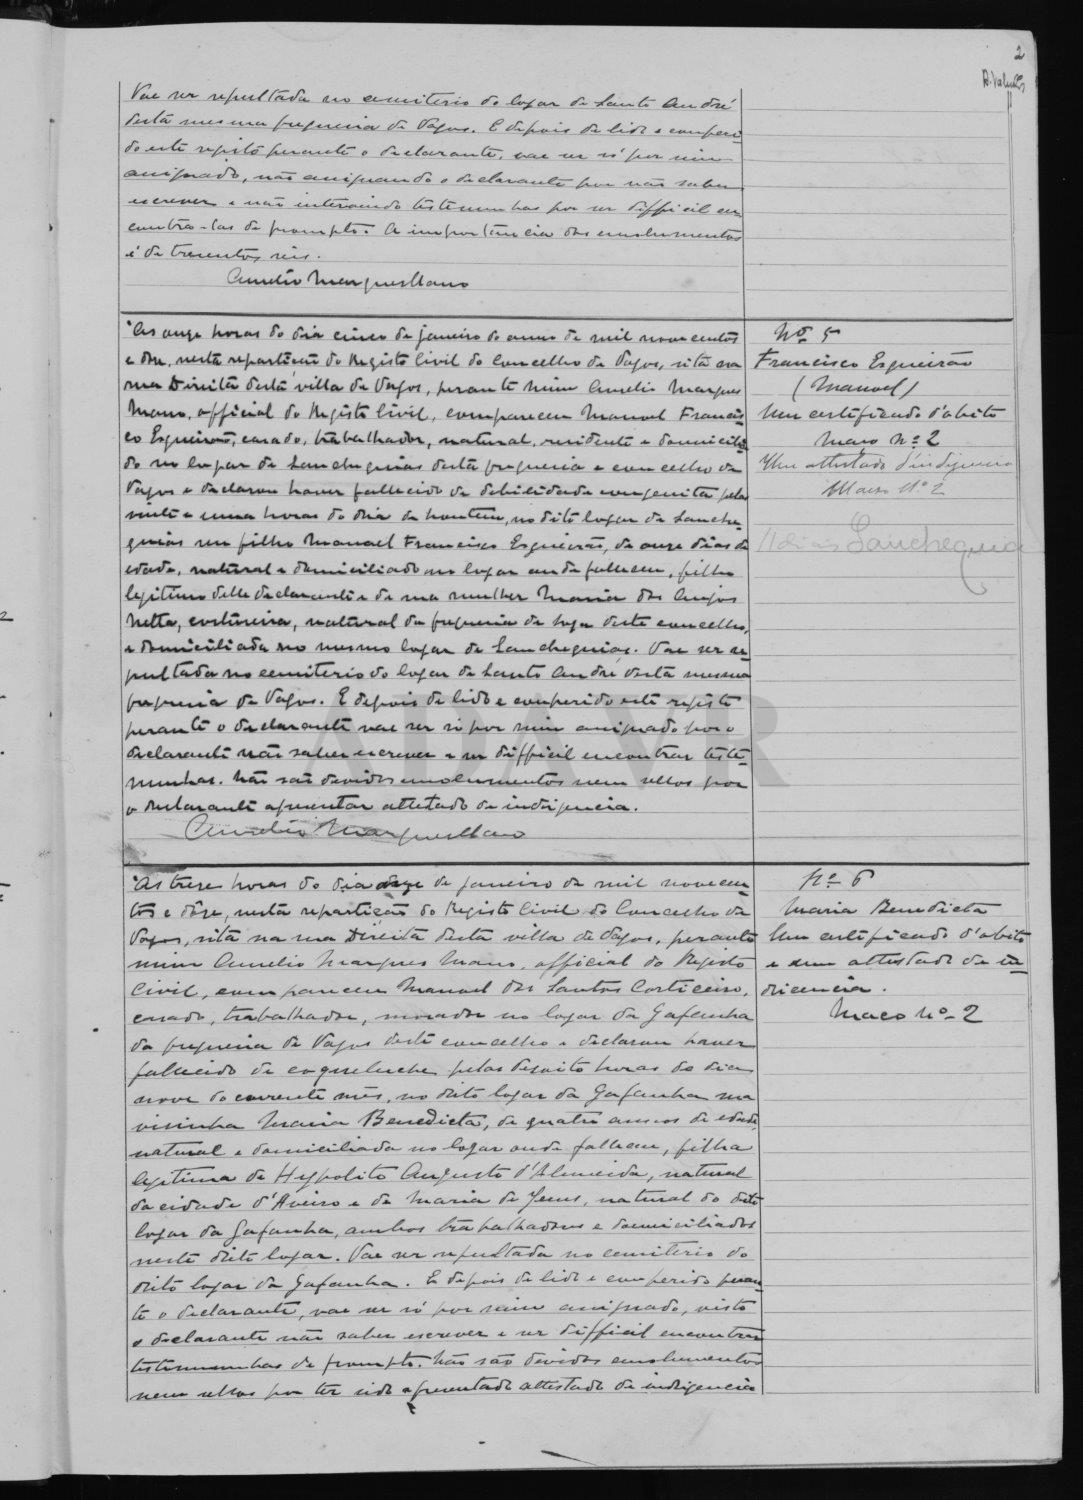 2
Vae ser sepultada no cemiterio do logar de Santo André
desta mesma freguesia de Vagos. E depois de lido e conferi-
do este registo perante o declarante, vae ser só por mim
assignado, não assignando o declarante por não saber
escrever e não intervindo testemunhas por ser difficil en-
contra-las de prompto. A importancia dos emolumentos
é de trezentos reis.
Aurelio Marques Mano
Nº 5
Francisco Esgueirão
(Manoel)
Um certificado d'obito
Maço Nº 2
Um attestado d'indigencia
Maço Nº 2
11 dias Sanchequias
Ás onze horas do dia cinco de janeiro do anno de mil novecentos
e doze, nesta repartição do Registo Civil do Concelho de Vagos, sita na
rua Direita desta villa de Vagos, perante mim Aurelio Marques
Mano, official do Registo Civil, compareceu Manoel Francis-
co Esgueirão, casado, trabalhador, natural, residente e domicilia-
do no logar de Sanchequias desta freguesia e concelho de
Vagos e declarou haver fallecido de debilidade congenita pelas
vinte e uma horas do dia de hontem, no dito logar de Sanche-
quias um filho Manoel Francisco Esgueirão, de onze dias de
edade, natural e domiciliado no logar onde falleceu, filho
legitimo delle declarante e de sua mulher Maria dos Anjos
Netta, costureira, natural da freguesia de Soza deste concelho,
e domiciliada no mesmo logar de Sanchequias. Vae ser se-
pultada no cemiterio do logar de Santo André desta mesma
freguesia de Vagos. E depois de lido e conferido este registo
perante o declarante vae ser só por mim assignado por o
declarante não saber escrever e ser difficil encontrar teste-
munhas. Não são devidos emolumentos nem sellos por
o declarante apresentar attestado de indigencia.
Aurelio Marques Mano
Nº 6
Maria Benedicta
Um certificado d'obito
e um attestado de in-
digencia.
Maço Nº 2
Ás treze horas do dia onze de janeiro de mil novecen-
tos e doze, nesta repartição do Registo Civil do Concelho de
Vagos, sita na rua Direita desta villa de Vagos, perante
mim Aurelio Marques Mano, official do Registo
Civil, compareceu Manoel dos Santos Corticeiro,
casado, trabalhador, morador no logar da Gafanha
da freguesia de Vagos deste concelho e declarou haver
fallecido de coqueluche pelas desoito horas do dia
nove do corrente mês, no dito logar da Gafanha sua
visinha Maria Benedicta, de quatro annos de edade,
natural e domiciliada no logar onde falleceu, filha
legitima de Hyppolito Augusto d'Almeida, natural
da cidade d'Aveiro e de Maria de Jesus, natural do dito
logar da Gafanha, ambos trabalhadores e domiciliados
neste dito logar. Vae ser sepultada no cemiterio do
dito logar da Gafanha. E depois de lido e conferido peran-
te o declarante, vae ser só por mim assignado, visto
o declarante não saber escrever e ser difficil encontrar
testemunhas de prompto. Não são devidos emolumentos
nem sellos por ter sido apresentado attestado de indigencia